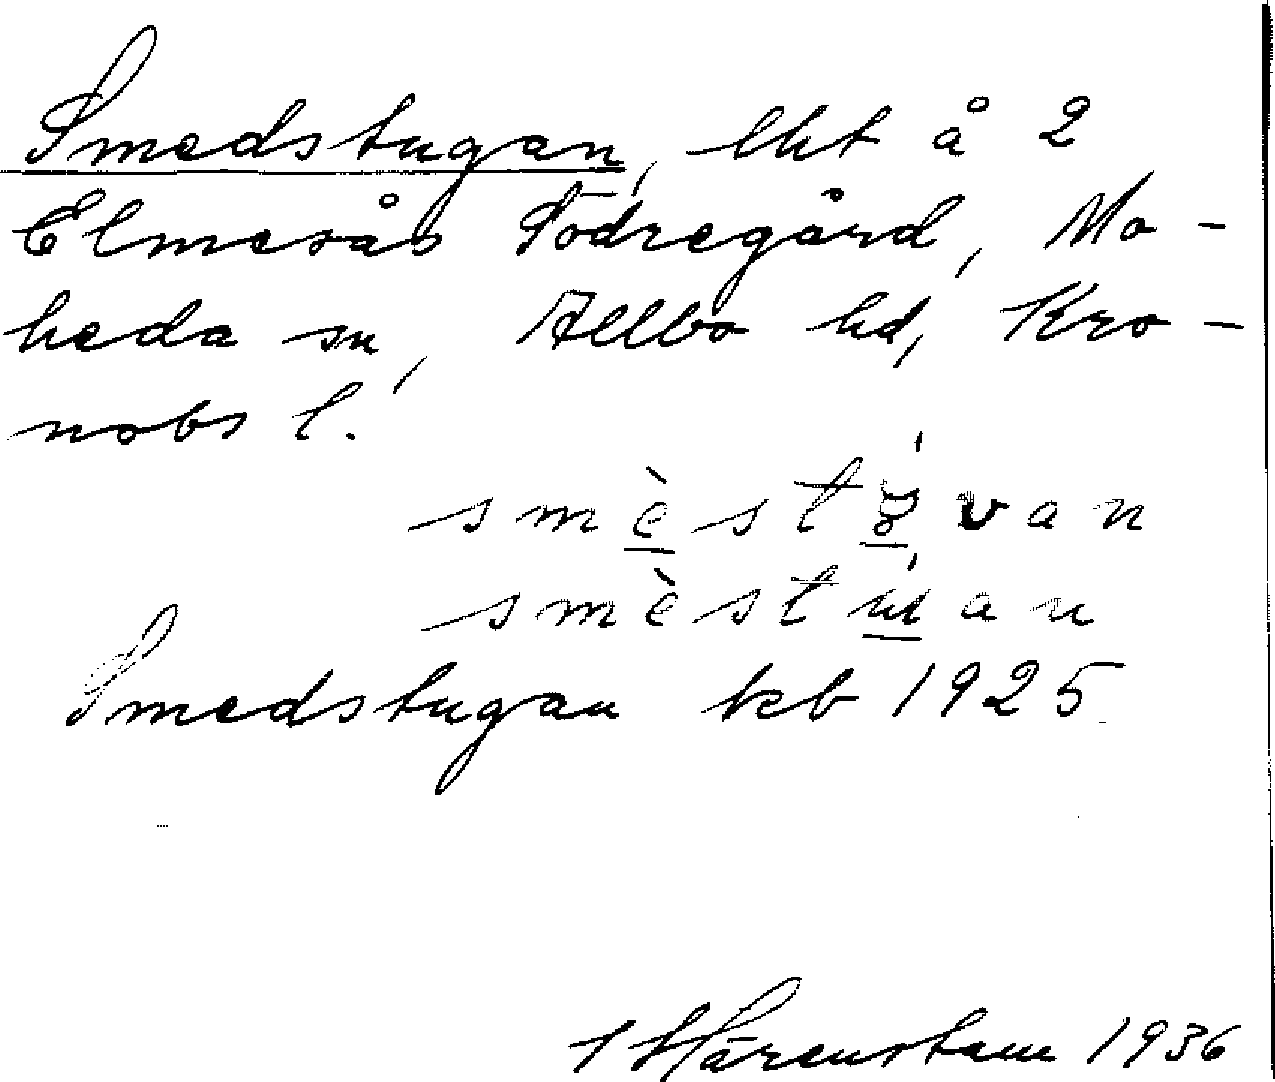 Smedstugan, lht å 2
Elmesås Södregård, Mo-
heda sn, Allbo hd, Kro-
nobs l.
smèst van
smèst an
Smedstugan kb 1925
Härenstam 1936